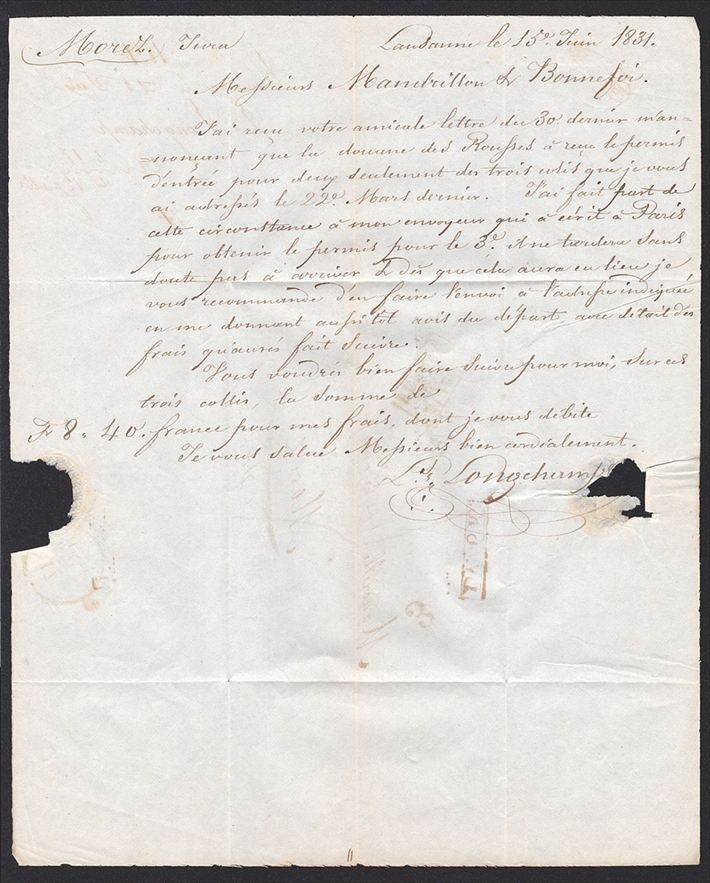 Morez. Jura
Lausanne le 15e. Juin 1831.
Messieurs Mandrillon & Bonnefoi.
J'ai reçu votre amicale lettre du 30 dernier m'an=
=nonçant que la douane des Rousses à reçu le permis
d'entrée pour deux seulement des trois colis que je vous
ai adressés le 22e. Mars dernier. J'ai fait part de
cette circonstance à mon envoyeur qui à écrit à Paris
pour obtenir le permis pour le 3e. il ne tardera sans
doute pas à arriver & dès que céla aura eu lieu je
vous recommande d'en faire l'envoi à l'adresse indiquée
en me donnant aussitot avis du départ avec détail des
frais qu'aurés fait suivre.
Vous voudrés bien faire suivre pour moi, sur ces
trois collis, la somme de
Fr 8. 40. france pour mes frais, dont je vous débite
Je vous salue Messieurs bien cordialement.
Longchamp
3